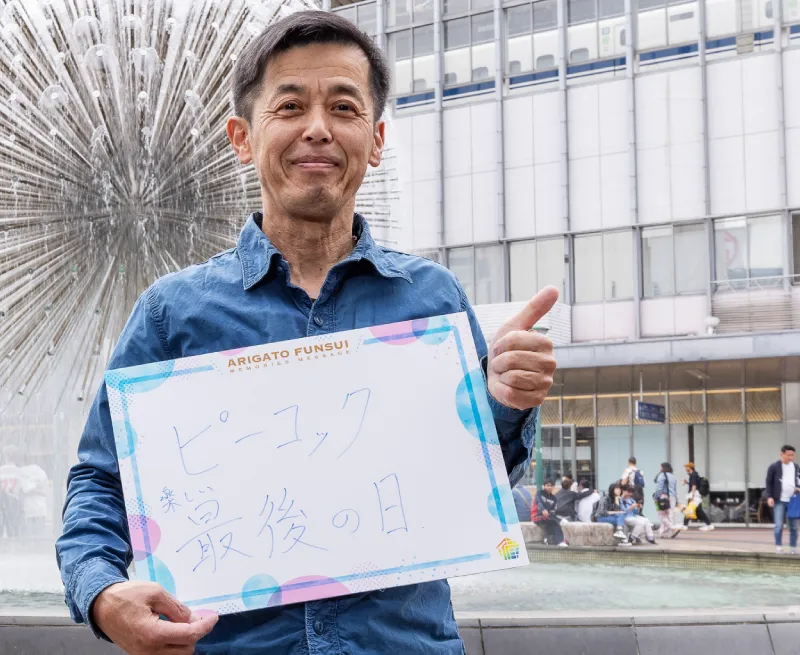 ARIGATO FUNSUI
MEMORIES MESSAGE
ピーコック
楽しい
最後の日